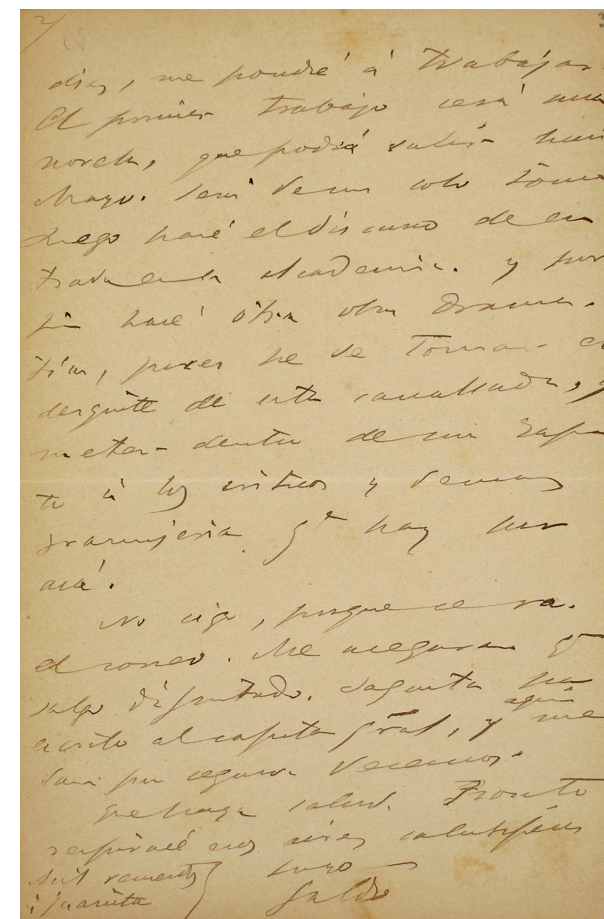 2/
dias, me pondré á trabajar
El primer trabajo será una
novela, que podrá salir hacia
Mayo. Será de un solo tomo
Luego haré el discurso de en
trada en la Academia. y por
fin haré otra obra dramá-
tica, pues he de tomar el
desquite de esta canallada, y
meter dentro de un zapa
to á los críticos y demas
granujeria qe hay por
acá.
No sigo, porque se va
el correo. Me aseguran qe
salgo diputado. Sagasta ha
escrito al capitan gral, y aquí me
dan por seguro. Veremos.
Que haya salud. Pronto
respiraré esos aires salutíferos
Mil recuerdos suyo
á Juanita Galdós